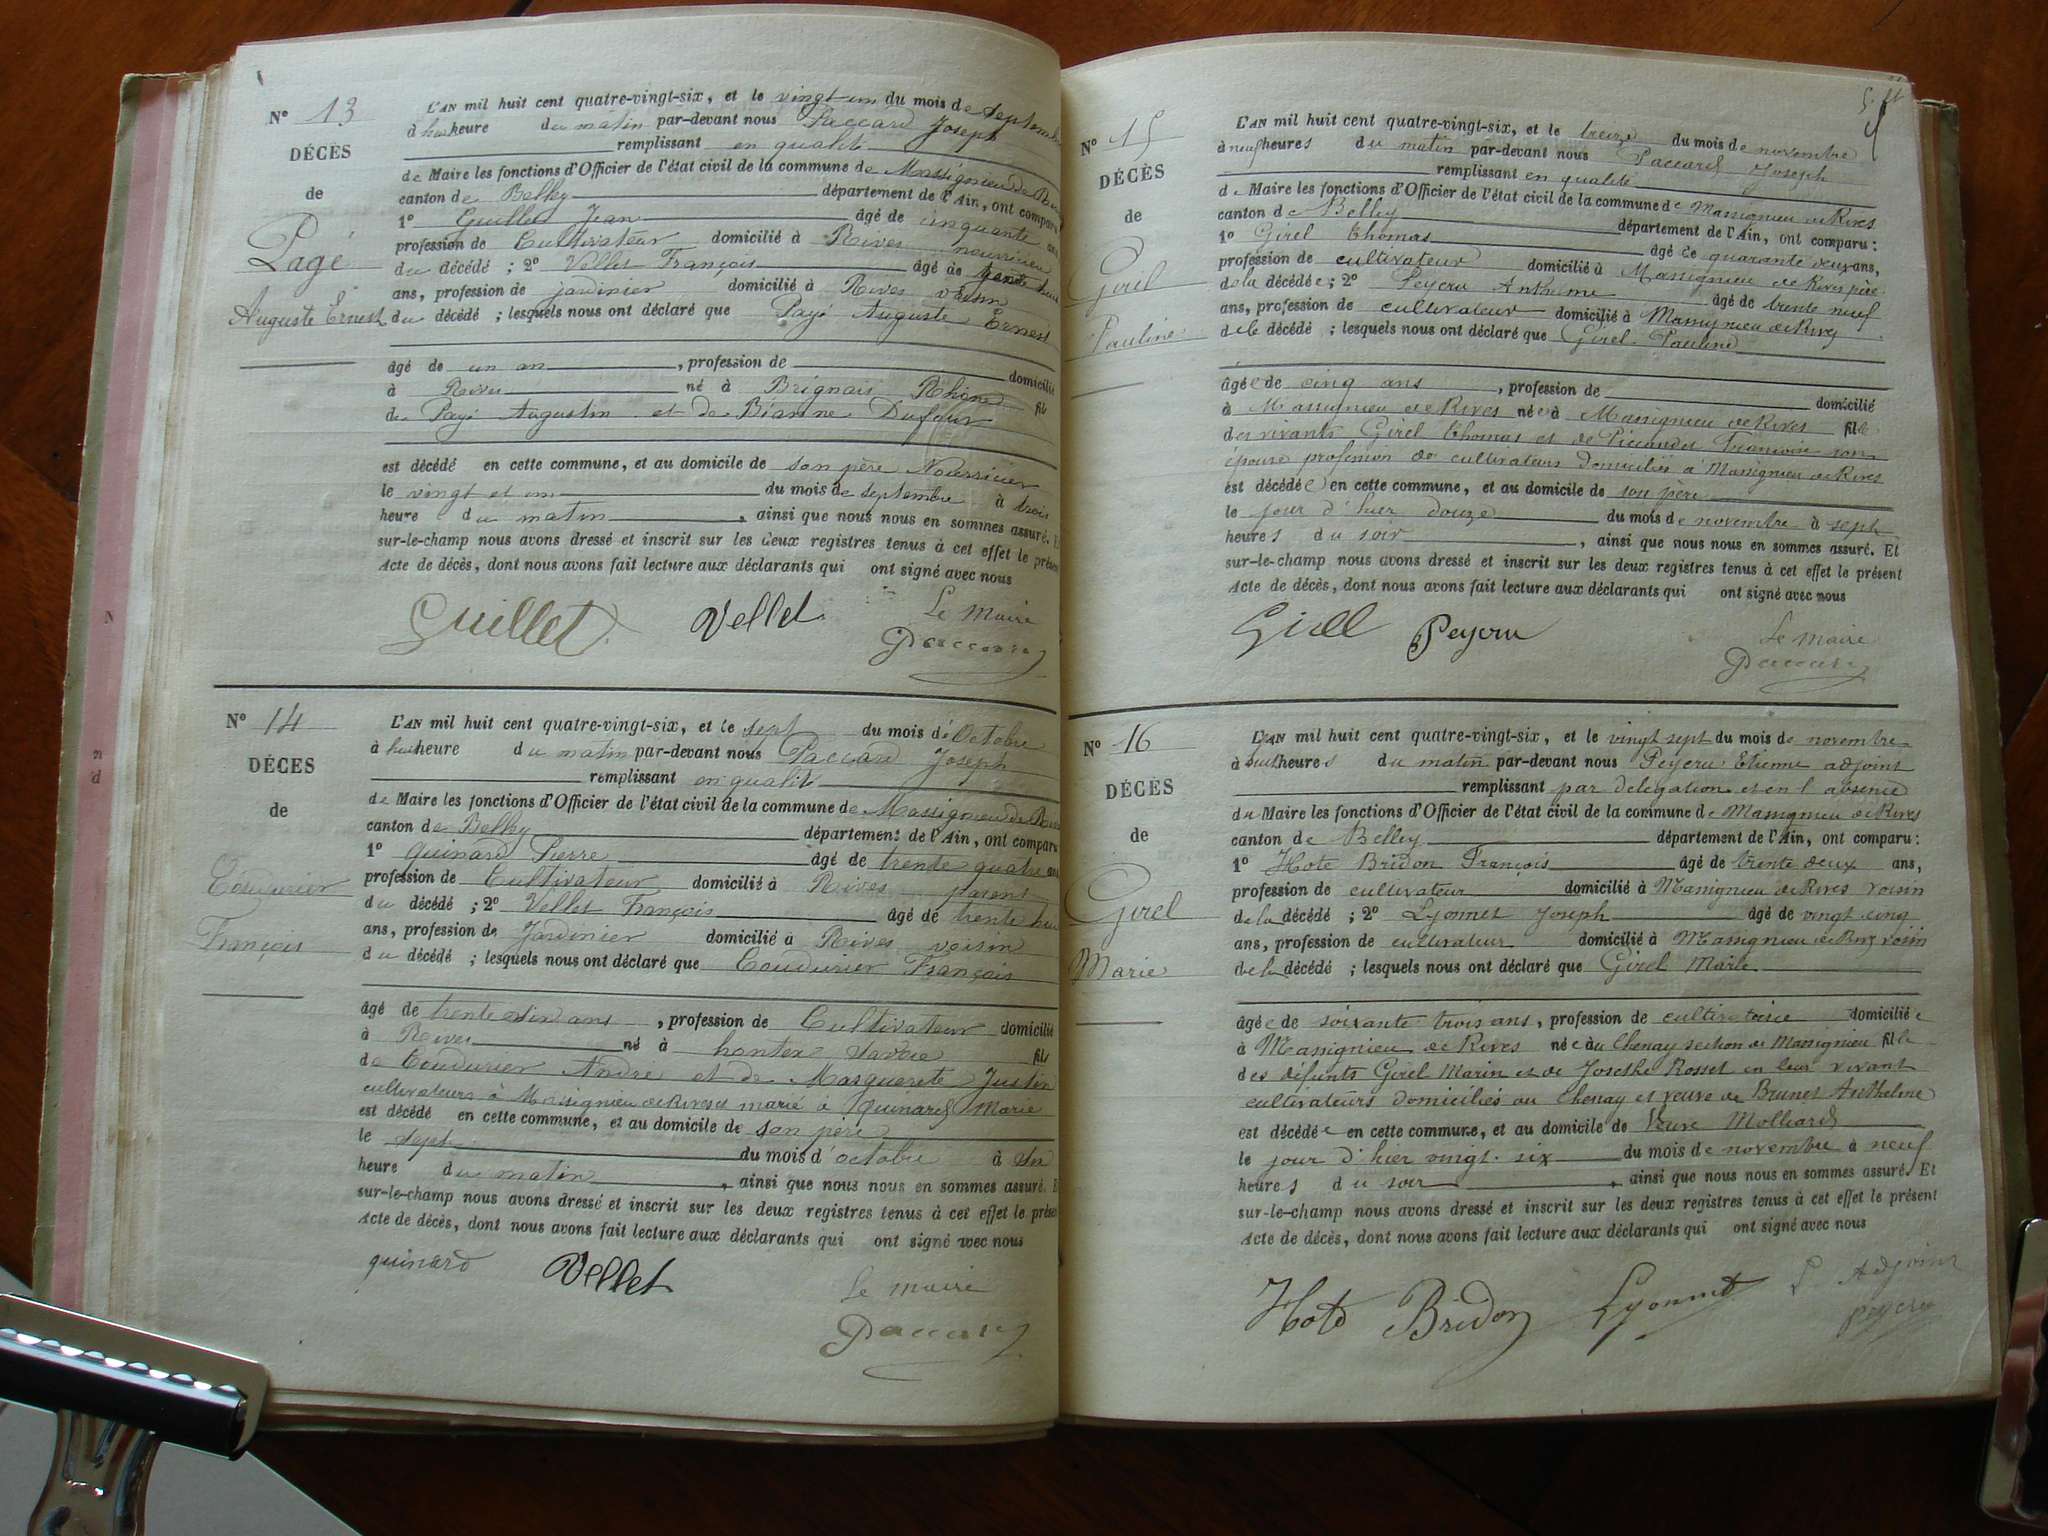 N° 13
DÉCÈS
de
Pagé
Auguste Ernest
L'AN mil huit cent quatre-vingt-six, et le vingt un du mois de septembre
à huit heure du matin par-devant nous Paccard Joseph
remplissant en qualité
de Maire les fonctions d'Officier de l'état civil de la commune de Massignieu de Rives
canton de Belley département de l'Ain, ont comparu
1° Guillet Jean âgé de cinquante ans
profession de Cultivateur domicilié à Rives nourricier
du décédé ; 2° Vellet François âgé de trente huit
ans, profession de jardinier domicilié à Rives voisin
du décédé ; lesquels nous ont déclaré que Pagé Auguste Ernest
âgé de un an , profession de domicilié
à Rives né à Brignais Rhône fils
de Pagé Augustin et de Dufour
est décédé en cette commune, et au domicile de son père Nourricier
le vingt et un du mois de septembre à trois
heure du matin , ainsi que nous nous en sommes assuré. Et
sur-le-champ nous avons dressé et inscrit sur les deux registres tenus à cet effet le présent
Acte de décès, dont nous avons fait lecture aux déclarants qui ont signé avec nous
Guillet Vellet Le Maire
Paccard
N° 14
DÉCES
de
Coudurier
François
L'AN mil huit cent quatre-vingt-six, et le sept du mois d'Octobre
à huit heure du matin par-devant nous Paccard Joseph
remplissant en qualité
de Maire les fonctions d'Officier de l'état civil de la commune de Massignieu de Rives
canton de Belley département de l'Ain, ont comparu
1° Quinard Pierre âgé de trente quatre ans
profession de Cultivateur domicilié à Rives parent
du décédé ; 2° Vellet François âgé de trente huit
ans, profession de Jardinier domicilié à Rives voisin
du décédé ; lesquels nous ont déclaré que Coudurier François
âgé de trente six ans , profession de Cultivateur domicilié
à Rives né à hontex Savoie fils
de Coudurier André et de Justin
cultivateurs à Massignieu de Rives et marié à Quinard Marie
est décédé en cette commune, et au domicile de son père
le sept du mois d'octobre à six
heure du matin , ainsi que nous nous en sommes assuré. Et
sur-le-champ nous avons dressé et inscrit sur les deux registres tenus à cet effet le présent
Acte de décès, dont nous avons fait lecture aux déclarants qui ont signé avec nous
quinard Vellet Le maire
Paccard
N° 15
DÉCÈS
de
Girel
Pauline
L'AN mil huit cent quatre-vingt-six, et le treize du mois de novembre
à neuf heures du matin par-devant nous Paccard Joseph
remplissant en qualité
de Maire les fonctions d'Officier de l'état civil de la commune de Massignieu de Rives
canton de Belley département de l'Ain, ont comparu :
1° Girel Thomas âgé de quarante deux ans,
profession de cultivateur domicilié à Massignieu de Rives père
de la décédée ; 2° Peycru Anthime âgé de trente neuf
ans, profession de cultivateur domicilié à Massignieu de Rives
de la décédé ; lesquels nous ont déclaré que Girel Pauline
âgée de cinq ans , profession de domicilié
à Massignieu de Rives née à Massignieu de Rives fille
des vivants Girel Thomas et de Françoise son
épouse profession de cultivateurs domiciliés à Massignieu de Rives
est décédée en cette commune, et au domicile de son père
le jour d'hier douze du mois de novembre à sept
heures du soir , ainsi que nous nous en sommes assuré. Et
sur-le-champ nous avons dressé et inscrit sur les deux registres tenus à cet effet le présent
Acte de décès, dont nous avons fait lecture aux déclarants qui ont signé avec nous
Girel Peycru Le Maire
Paccard
N° 16
DÉCÈS
de
Girel
Marie
L'AN mil huit cent quatre-vingt-six, et le vingt sept du mois de novembre
à huit heures du matin par-devant nous Peycru Etienne adjoint
remplissant par délégation et en l'absence
du Maire les fonctions d'Officier de l'état civil de la commune de Massignieu de Rives
canton de Belley département de l'Ain, ont comparu :
1° Hote Bridon François âgé de trente deux ans,
profession de cultivateur domicilié à Massignieu de Rives voisin
de la décédé ; 2° Lyonnet Joseph âgé de vingt cinq
ans, profession de cultivateur domicilié à Massignieu de Rives voisin
de la décédé ; lesquels nous ont déclaré que Girel Marie
âgée de soixante trois ans , profession de cultivatrice domiciliée
à Massignieu de Rives née au Chenay section de Massignieu fille
des défunts Girel Marin et de Josethe Rosset en leur vivant
cultivateurs domiciliés au Chenay et veuve de Brunet Anthelme
est décédée en cette commune, et au domicile de Veuve Molliard
le jour d'hier vingt six du mois de novembre à neuf
heures du soir , ainsi que nous nous en sommes assuré. Et
sur-le-champ nous avons dressé et inscrit sur les deux registres tenus à cet effet le présent
Acte de décès, dont nous avons fait lecture aux déclarants qui ont signé avec nous
Hote Bridon Lyonnet L'Adjoint
Peycru